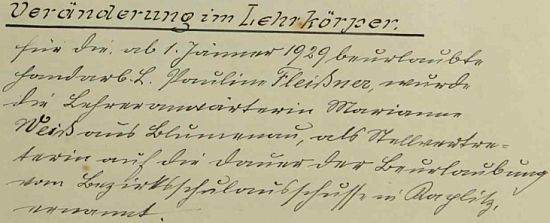 Veränderung im Lehrkörper.
Für die, ab 1. Jänner 1929 beurlaubte
Handarb. L. Pauline Fleißner, wurde
die Lehreranwärterin Marianne
Weiß aus Blumenau, als Stellvertre-
terin auf die Dauer der Beurlaubung
vom Bezirksschulausschusse in Kaplitz,
ernannt.